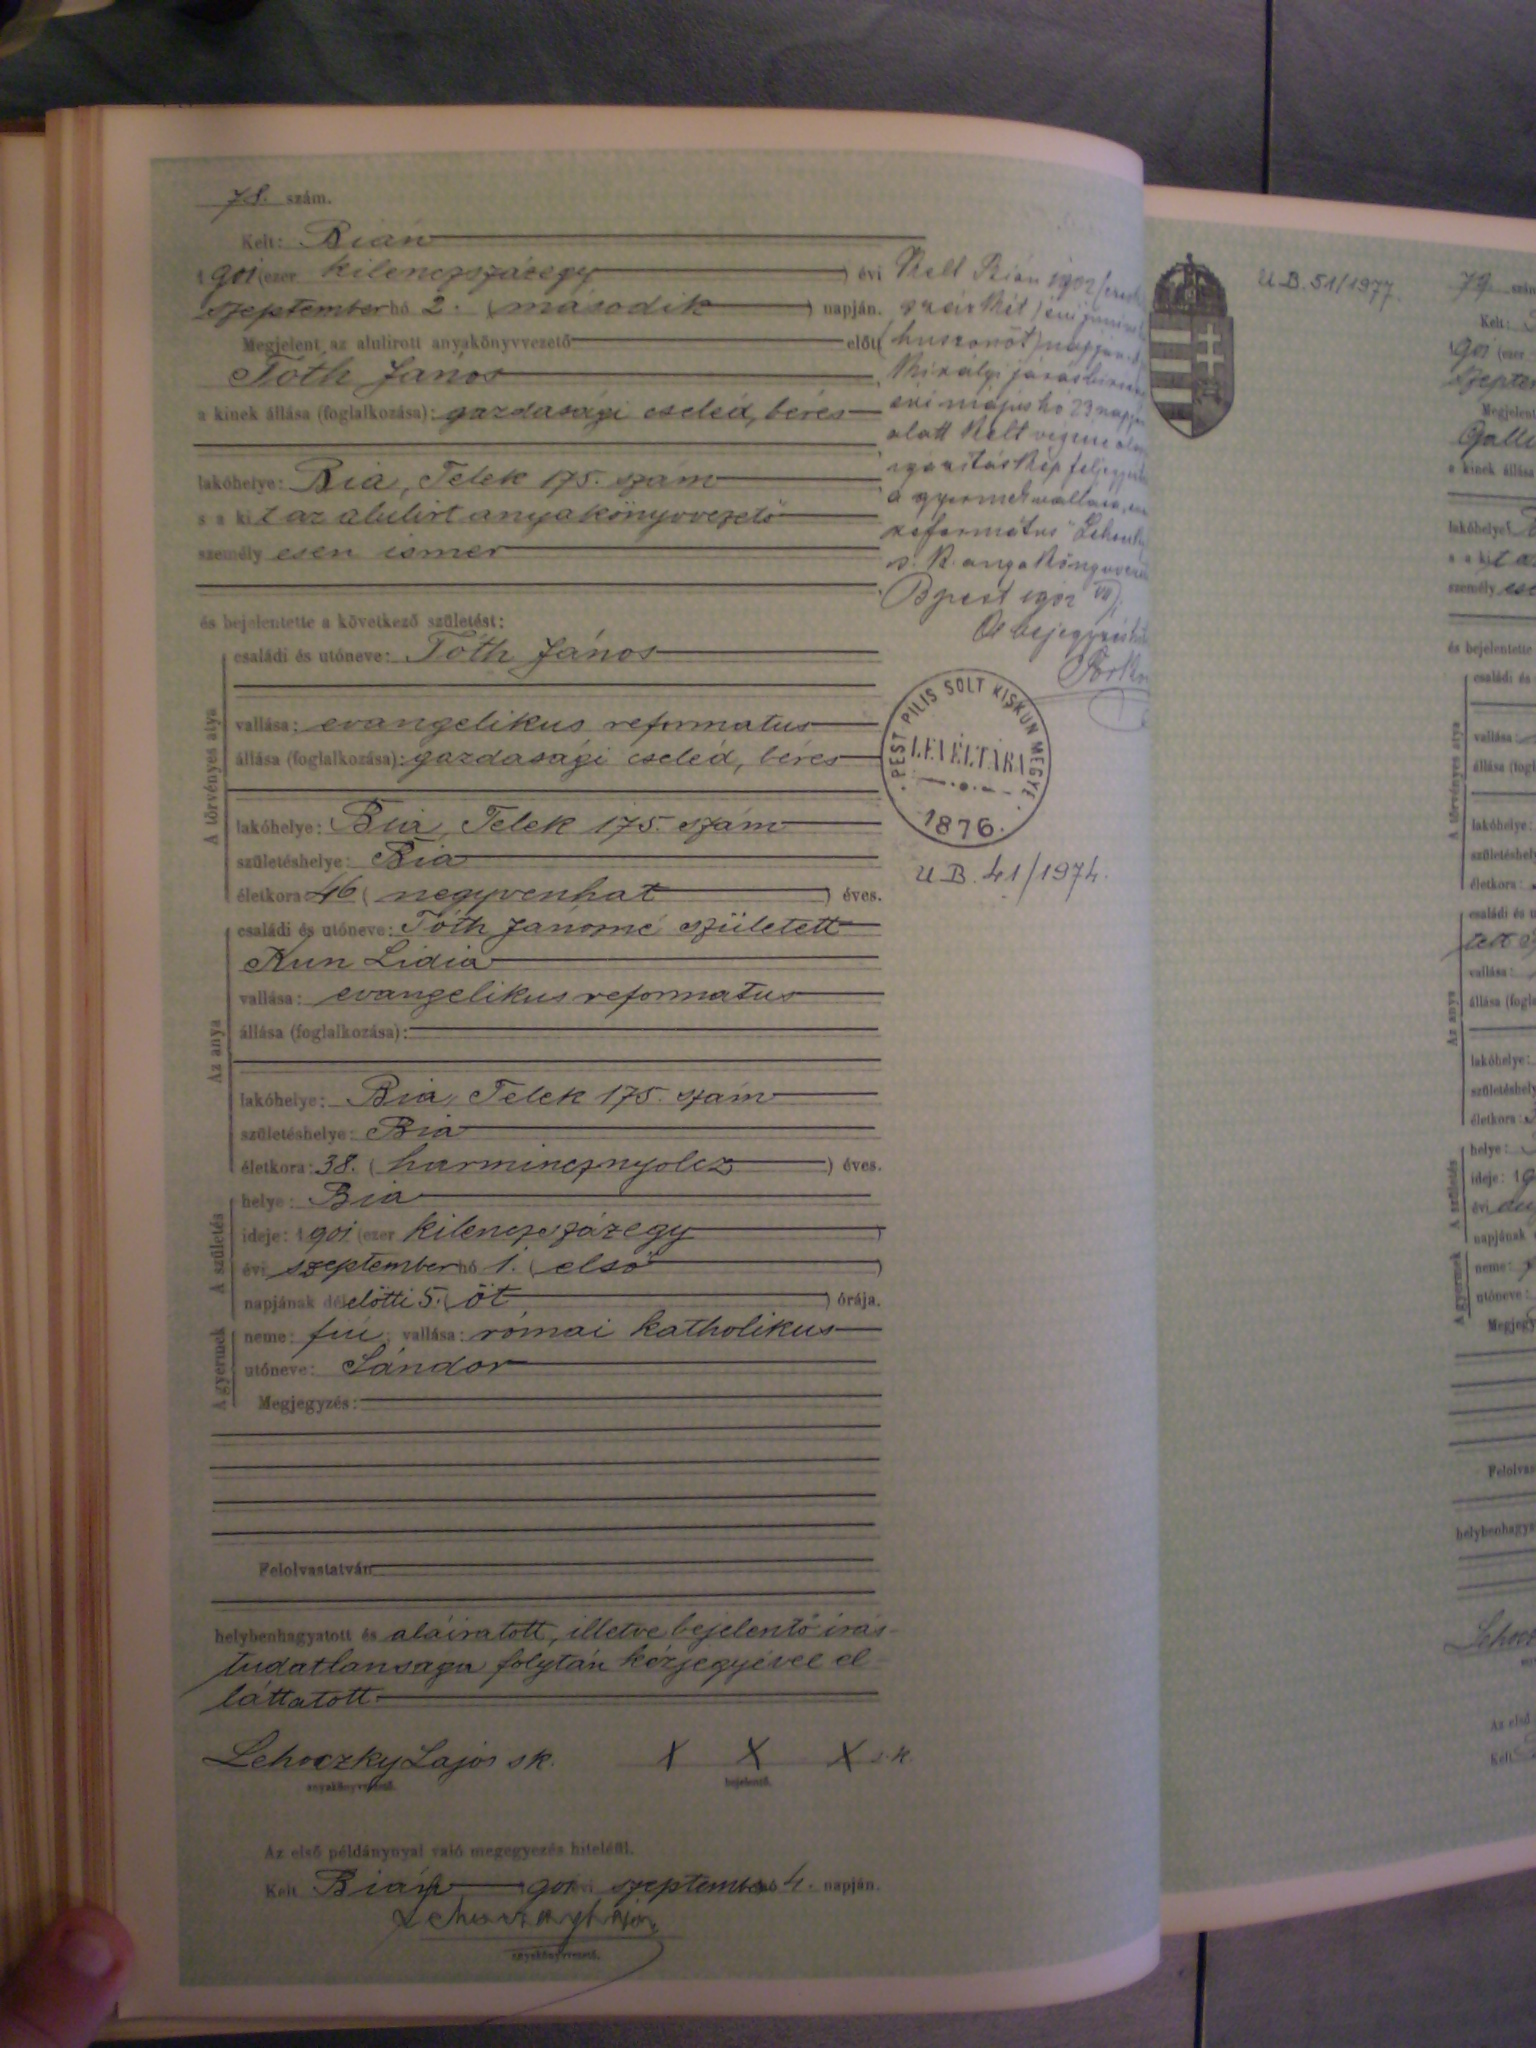 78. szám.
Kelt: Bián
1901 (ezer kilenczszázegy) évi
szeptember hó 2. (második) napján.
Megjelent az alulirott anyakönyvvezető előtt
Tóth János
a kinek állása (foglalkozása): gazdasági cseléd, béres
lakóhelye: Bia, Telek 175. szám
s a kit az alulirt anyakönyvvezető
személyesen ismer
és bejelentette a következő születést:
A törvényes atya
családi és utóneve: Tóth János
vallása: evangelikus reformatus
állása (foglalkozása): gazdasági cseléd, béres
lakóhelye: Bia, Telek 175. szám
születéshelye: Bia
életkora: 46 (negyvenhat) éves.
Az anya
családi és utóneve: Tóth Jánosné született
Kun Lidia
vallása: evangelikus reformatus
állása (foglalkozása):
lakóhelye: Bia, Telek 175. szám
születéshelye: Bia
életkora: 38. (harmincznyolcz) éves.
A születés
helye: Bia
ideje: 1901 (ezer kilenczszázegy)
évi szeptember hó 1. (első)
napjának délelőtti 5. (öt) órája.
A gyermek
neme: fiú; vallása: római katholikus
utóneve: Sándor
Megjegyzés:
Felolvastatván
helybenhagyatott és aláiratott, illetve bejelentő irás-
tudatlansága folytán kézjegyével el-
láttatott.
Lehoczky Lajos sk. X X X s.k.
anyakönyvvezető. bejelentő.
Az első példánynyal való megegyezés hiteléül.
Kelt Bián 1901 évi szeptember hó 4. napján.
Lehoczky Lajos
anyakönyvvezető.
Kelt Bián 1902 (
két) évi
(huszonöt) napján.
Királyi
évi május hó 29 napján
alatt kelt végzése
a gyermek vallása
református" Lehoczky
s. k. anyakönyvvezető
Bpest 1902 VII
PEST PILIS SOLT KISKUN MEGYE
LEVÉLTÁRA
1876.
U.B. 41/1974.
U.B. 51/1977.
79 szám
Kelt:
1901 (ezer
Megjelent
a kinek állása
lakóhelye:
személyes
és bejelentette
A törvényes atya
családi és
vallása:
állása (fogl
lakóhelye:
születéshely
életkora:
Az anya
családi és
vallása:
állása (fogl
lakóhelye:
születéshely
életkora:
A születés
helye:
ideje: 19
évi
napjának
A gyermek
neme:
utóneve:
Megjegy
Felolvas
helybenhagy
Az első
Kelt